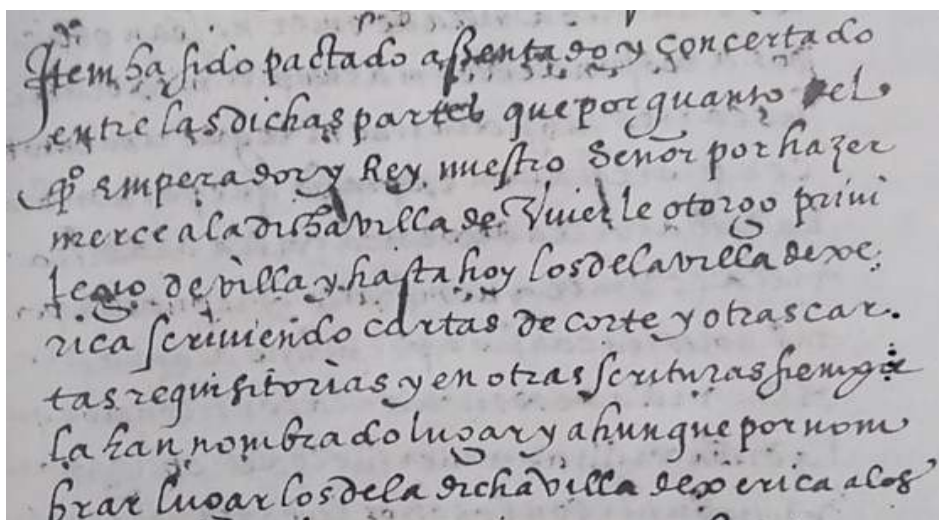 Item ha sido pactado assentado y concertado
entre las dichas partes que por quanto el
Emperador y Rey nuestro Señor por hazer
merce a la dicha villa de Viuer le otorgo priui
legio de villa y hasta hoy los de la villa de xe
rica scriuiendo cartas de corte y otras car.
tas requisitorias y en otras scrituras siempre
la han nombrado lugar y ahunque por nom
brar lugar los de la dicha villa de xerica a los